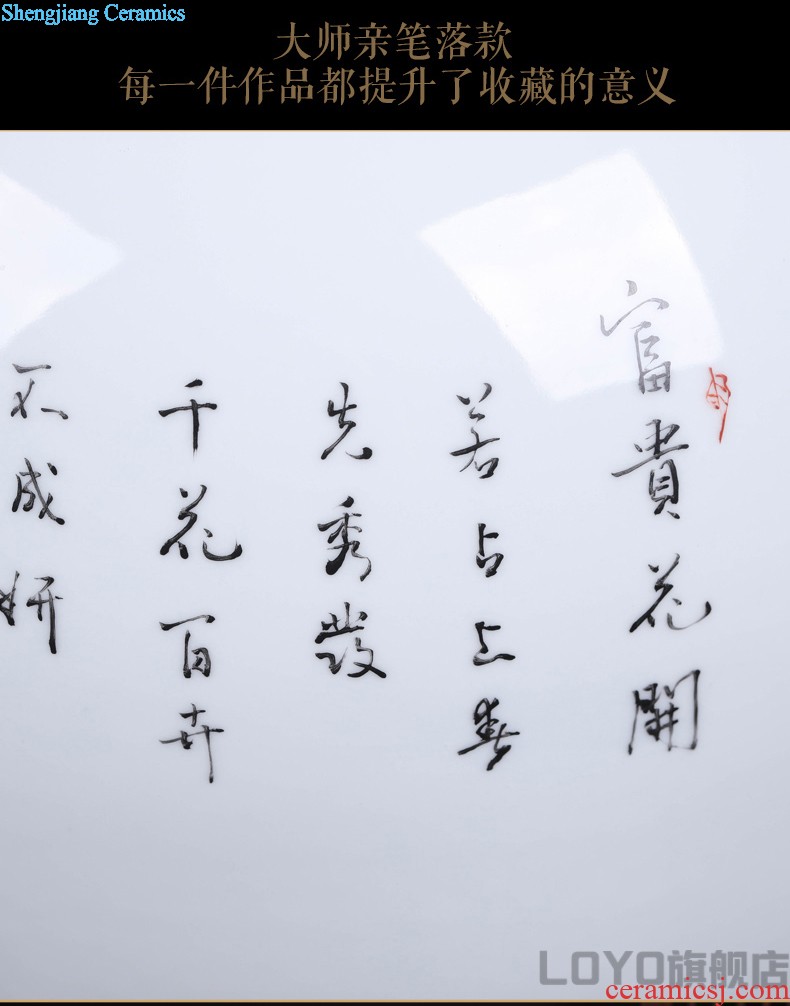 Shengjiang Ceramics
大师亲笔落款
每一件作品都提升了收藏的意义
富貴花開
若占上春
先秀發
千花百卉
不成妍
LOYO旗舰店
ceramicsj.com